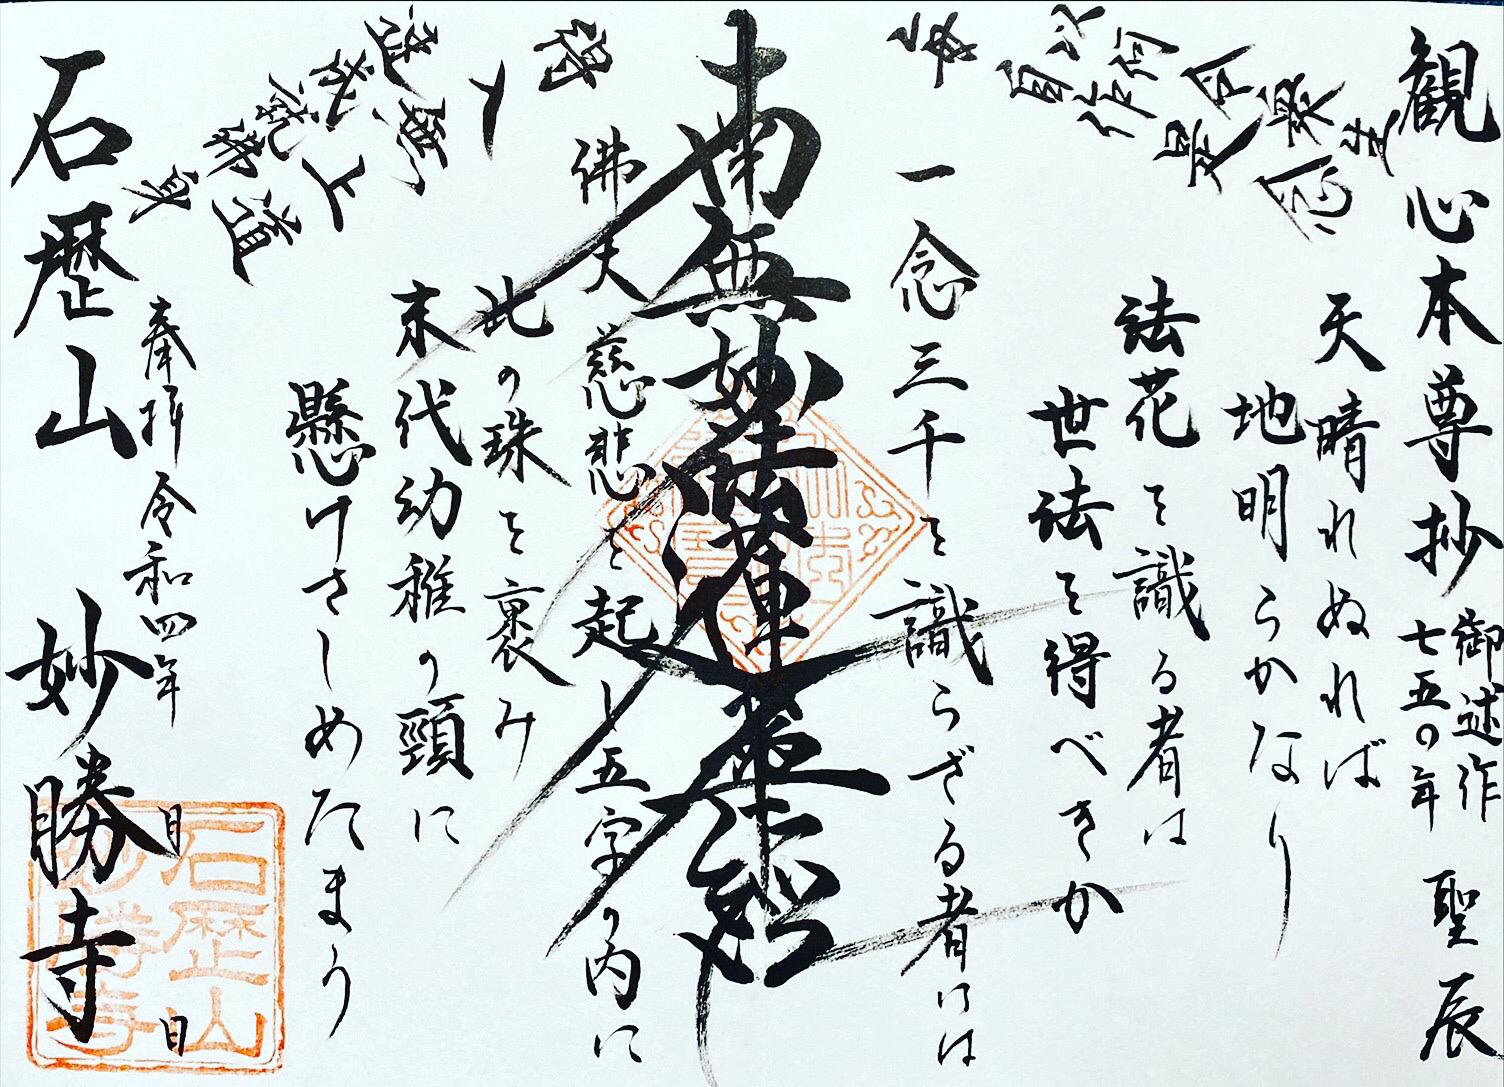 観心本尊抄 御述作
七五〇年 聖辰
毎自作是念
以何令衆生
得入無上道
速成就佛身
天晴れぬれば
地明らかなり
法花を識る者は
世法を得べきか
一念三千を識らざる者には
南無妙法蓮華経
佛大慈悲を起し五字の内に
此の珠を裹み
末代幼稚の頸に
懸けさしめたまう
奉拝 令和四年 月 日
石歴山 妙勝寺
石歴山
妙勝寺